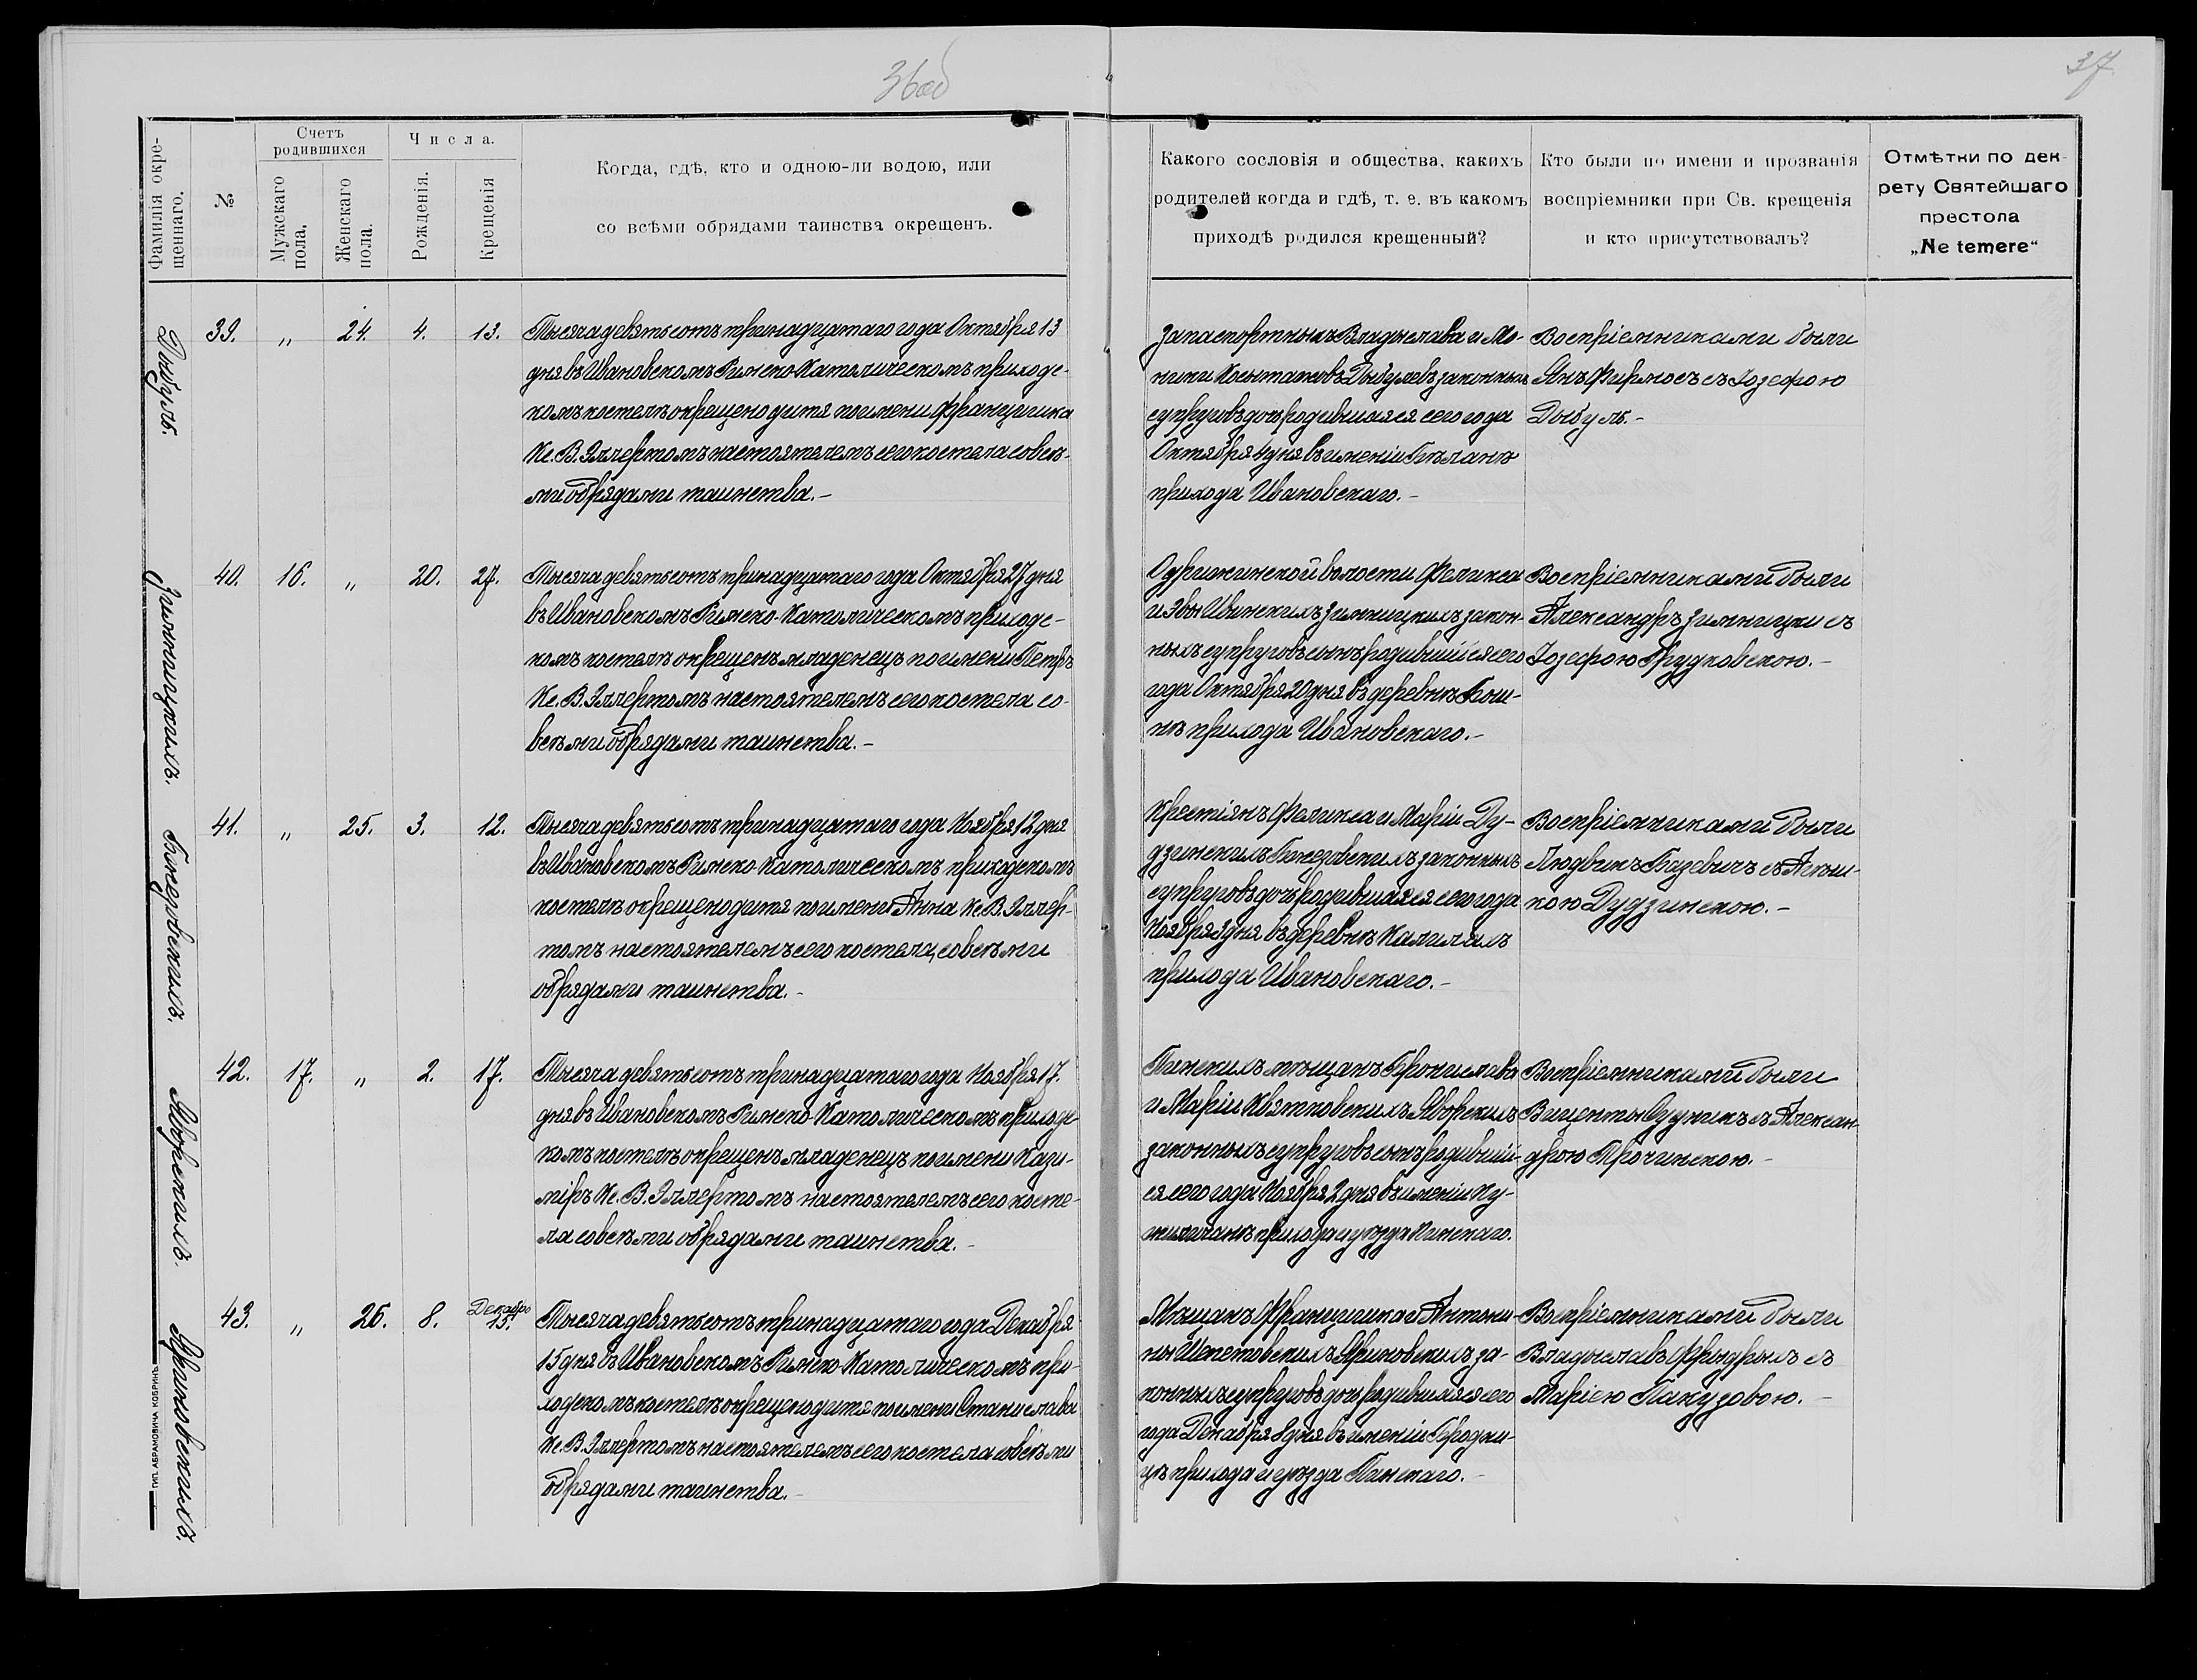 36об
37
Фамилія окре-
щеннаго.
№
Счетъ
родившихся
Мужскаго
пола.
Женскаго
пола.
Числа.
Рожденія.
Крещенія
Когда, гдѣ, кто и одною-ли водою, или
со всѣми обрядами таинства окрещенъ.
Какого сословія и общества, какихъ
родителей когда и гдѣ, т. е. въ какомъ
приходѣ родился крещенный?
Кто были по имени и прозванія
воспріемники при Св. крещенія
и кто присутствовалъ?
Отмѣтки по дек-
рету Святейшаго
престола
„Ne temere“
Дыбуль.
39. „ 24. 4. 13.
Тысяча девятьсотъ тринадцатаго года Октября 13
дня въ Ивановскомъ Римско-Католическомъ приходс-
комъ костелѣ окрещено дитя по имени Францишка
Кс. В. Эллертомъ настоятелемъ сего костела со всѣ-
ми обрядами таинства.-
Запаспортныхъ Владыслава и Мо-
ники Дыбулевъ законныхъ
супруговъ дочь родившаяся сего года
Октября 4 дня въ имѣніи
прихода Ивановскаго.-
Воспріемниками были
Янъ Фирмосъ съ Іозефою
Дыбуль.-
Зимницкихъ.
40. 16. „ 20. 27.
Тысяча девятьсотъ тринадцатаго года Октября 27 дня
въ Ивановскомъ Римско-Католическомъ приходс-
комъ костелѣ окрещенъ младенецъ по имени Петръ
Кс. В. Эллертомъ настоятелемъ сего костела со
всѣми обрядами таинства.-
Одрижинской волости Феликса
и Эвы Ивинскихъ Зимницкихъ закон-
ныхъ супруговъ сынъ родившійся сего
года Октября 20 дня въ деревнѣ
прихода Ивановскаго.-
Воспріемниками были
Александръ Зимницки съ
Іозефою Грудковскою.-
41. „ 25. 3. 12.
Тысяча девятьсотъ тринадцатаго года Ноября 12 дня
въ Ивановскомъ Римско-Католическомъ приходскомъ
костелѣ окрещено дитя по имени Анна Кс. В. Эллер-
томъ настоятелемъ сего костела, со всѣми
обрядами таинства.-
Крестіянъ Феликса и Маріи Ду-
дзинскихъ законныхъ
супруговъ дочь родившаяся сего года
Ноября 3 дня въ деревнѣ
прихода Ивановскаго.-
Воспріемниками были
Людвикъ съ
Дудзинскою.-
Яворскихъ.
42. 17. „ 2. 17.
Тысяча девятьсотъ тринадцатаго года Ноября 17.
дня въ Ивановскомъ Римско-Католическомъ приходс
комъ костелѣ окрещенъ младенецъ по имени Кази-
міръ Кс. В. Эллертомъ настоятелемъ сего косте-
ла со всѣми обрядами таинства.-
Пинскихъ мѣщанъ Бронислава
и Маріи Квятковскихъ Яворскихъ
законныхъ супруговъ сынъ родившій-
ся сего года Ноября 2 дня въ имѣніи
прихода и уѣзда Пинскаго.
Воспріемниками были
Виценты съ Алексан-
дрою Прочинскою.-
Яриновскихъ.
43. „ 26. 8. Декабрь 15.
Тысяча девятьсотъ тринадцатаго года Декабря
15 дня въ Ивановскомъ Римско-Католическомъ при-
ходскомъ костелѣ окрещено дитя по имени Станислава
Кс. В. Эллертомъ настоятелемъ сего костела со всѣми
обрядами таинства.-
Мѣщанъ Францишка и Антони-
ны Шепетовскихъ Яриновскихъ за-
конныхъ супруговъ дочь родившаяся сего
года Декабря 8 дня въ имѣніи Городи-
щѣ прихода и уѣзда Пинскаго.-
Воспріемниками были
Владыславъ Фрыдрыхъ съ
Маріею Пакузовою.-
ТИП. АБРАМОВИЧА КОБРИНЪ